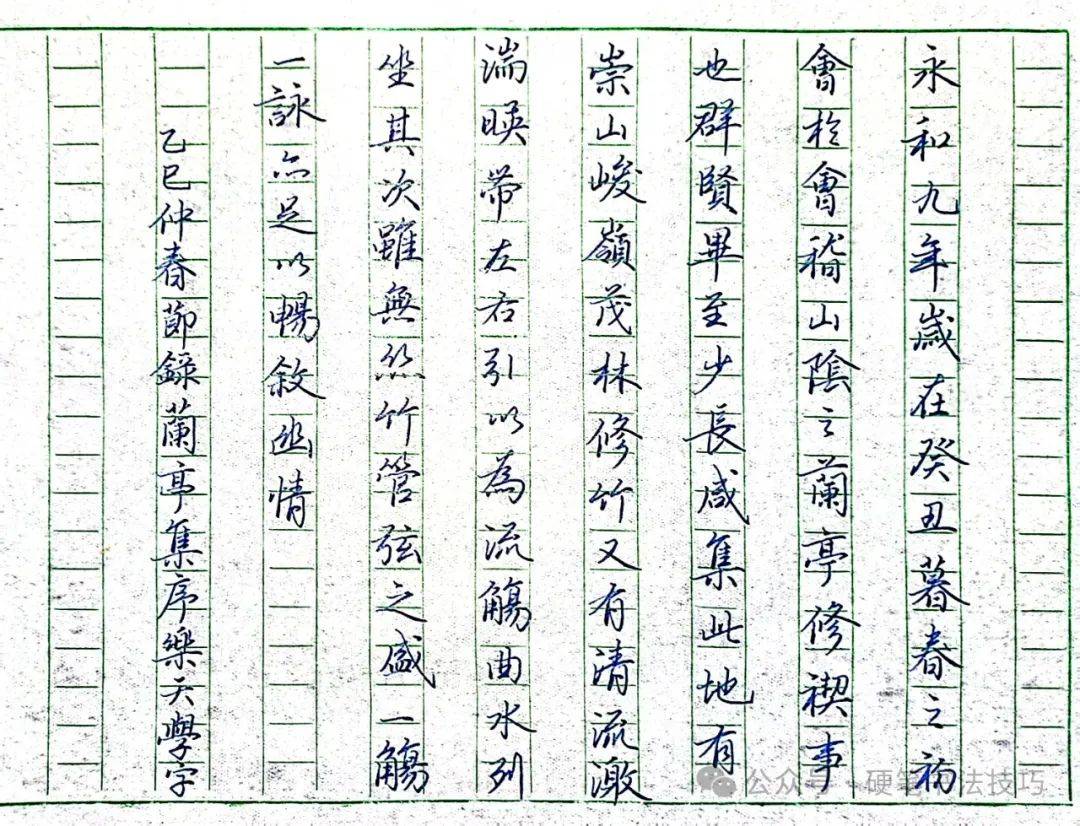 永和九年歲在癸丑暮春之初
會於會稽山陰之蘭亭修禊事
也群賢畢至少長咸集此地有
崇山峻嶺茂林修竹又有清流激
湍暎帶左右引以為流觴曲水列
坐其次雖無絲竹管弦之盛一觴
一詠亦足以暢敘幽情
乙巳仲春節錄蘭亭集序樂天學字
公众号·硬笔书法技巧